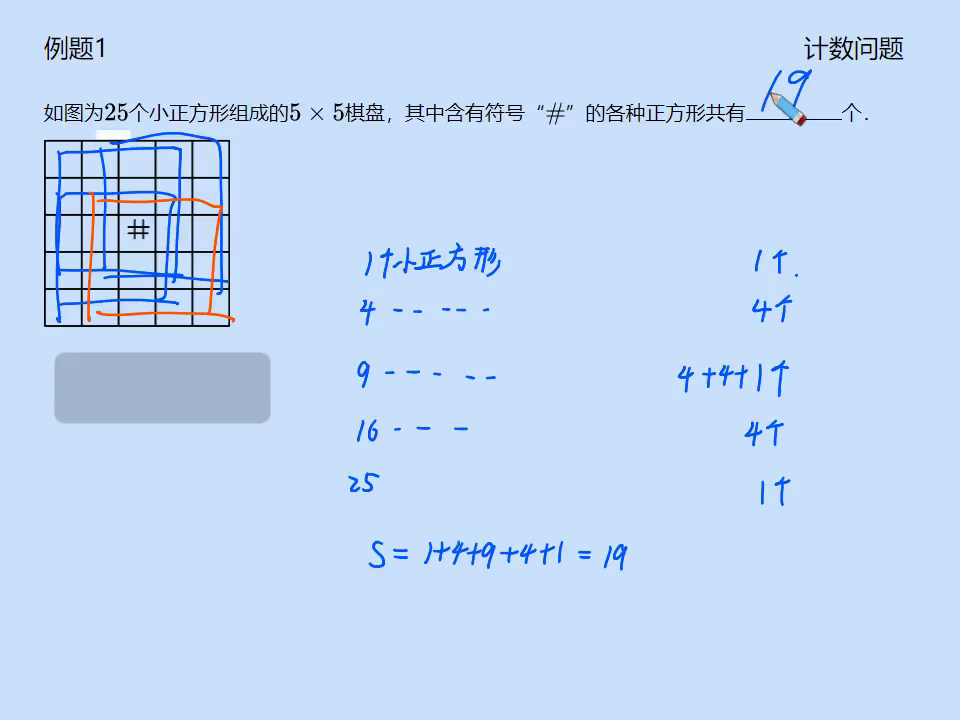 例题1
计数问题
如图为25个小正方形组成的5×5棋盘，其中含有符号“#”的各种正方形共有19个.
#
1个小正方形 1个.
4 -- -- - 4个
9 --- -- 4+4+1个
16 - - - 4个
25 1个
S = 1+4+9+4+1 = 19